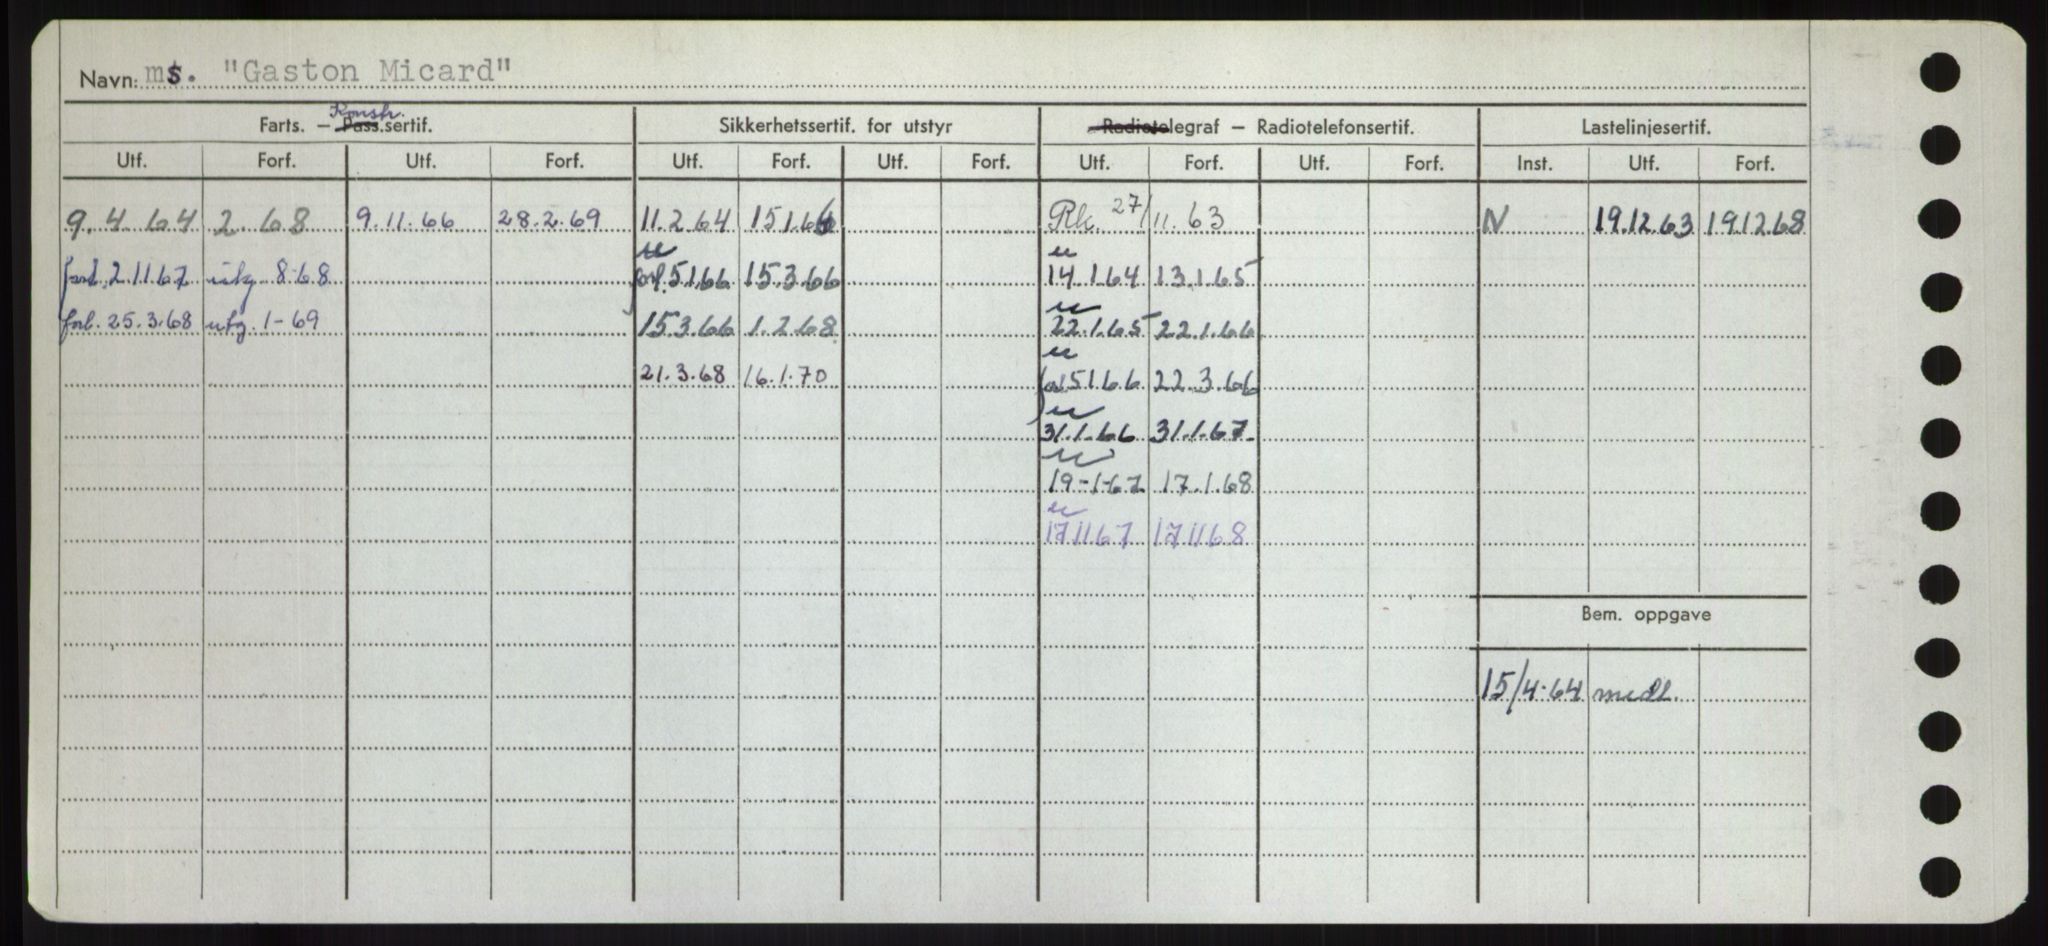 Navn: ms. "Gaston Micard"
Konstr.
Farts. – Pass.sertif. Sikkerhetssertif. for utstyr Radiotelegraf – Radiotelefonsertif. Lastelinjesertif.
Utf. Forf. Utf. Forf. Utf. Forf. Utf. Forf. Utf. Forf. Utf. Forf. Inst. Utf. Forf.
9.4.64 2.68 9.11.66 28.2.69 11.2.64 15.1.66 Rk. 27/11.63 N 19.12.63 19.12.68
2.11.67 utg 8-68 forl. 5.1.66 15.3.66 14.1.64 13.1.65
forl. 25.3.68 utg. 1-69 15.3.66 1.2.68 22.1.65 22.1.66
21.3.68 16.1.70 5.1.66 22.3.66
31.1.66 31.1.67
19-1-67 17.1.68
17.11.67 17.11.68
Bem. oppgave
15/4-64 medl.